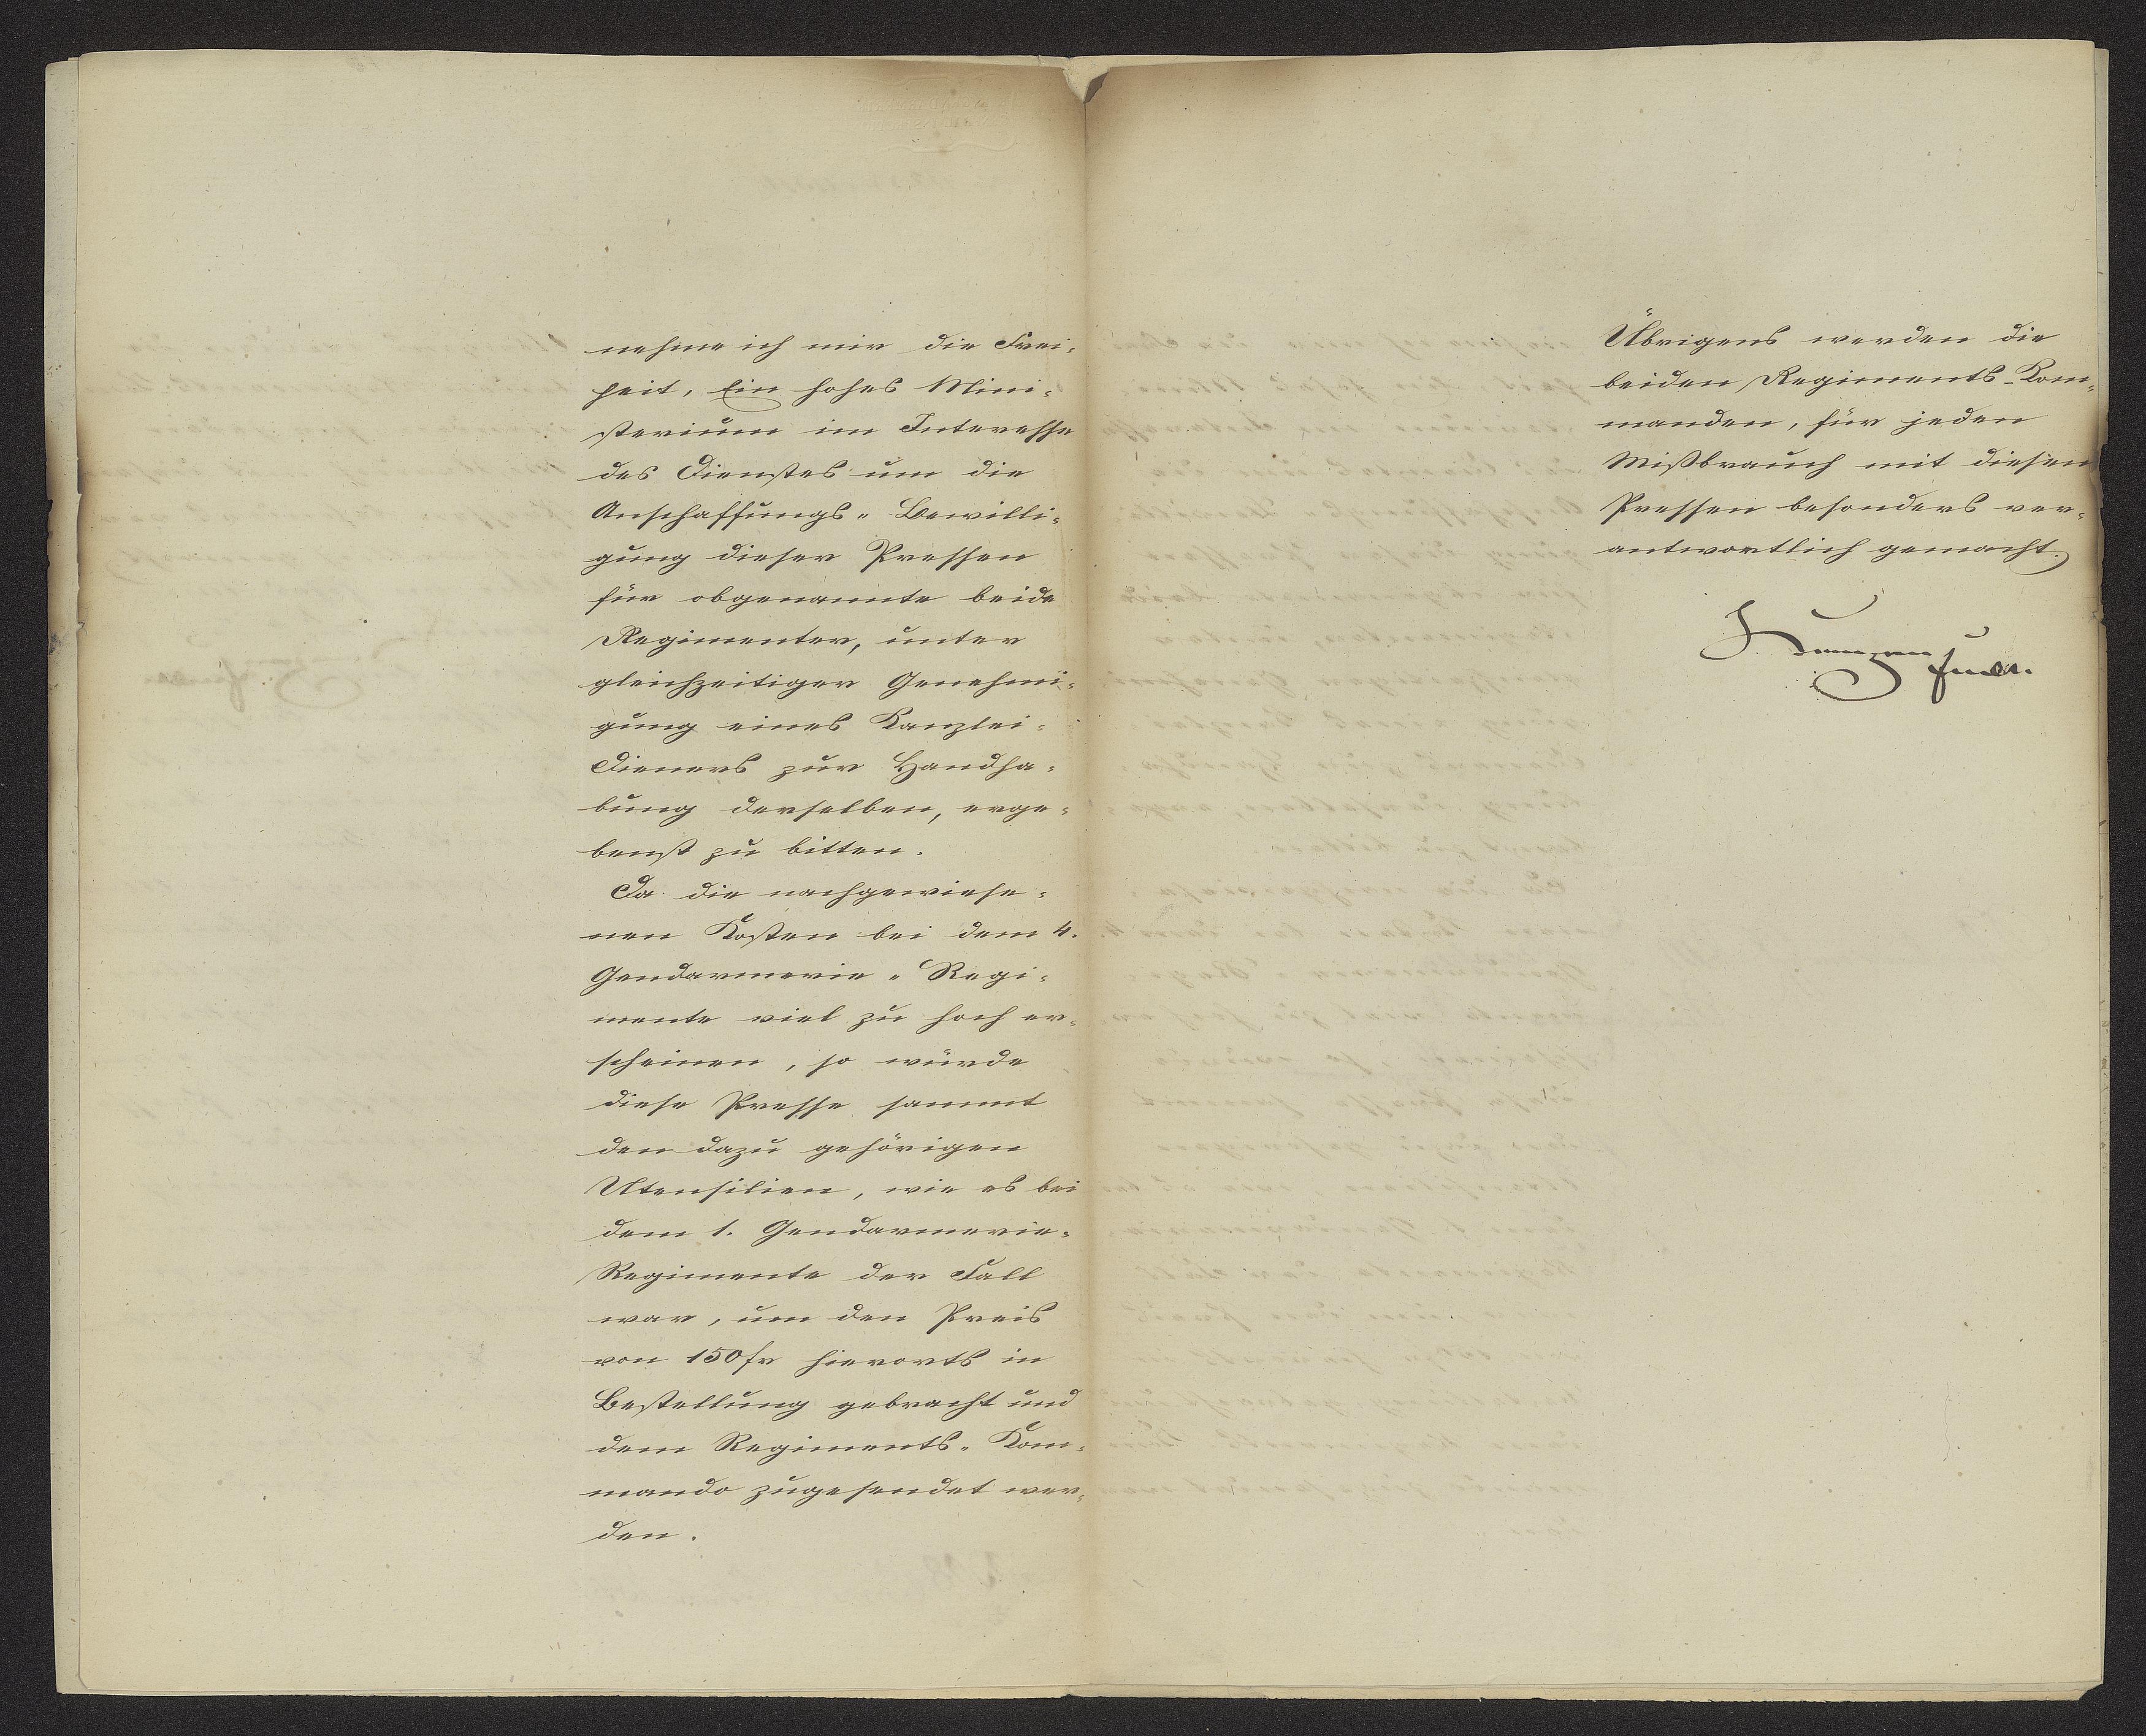 nehme ich mir die Frei-
heit, Ein hohes Mini-
sterium im Interesse
des Dienstes um die
Anschaffungs-Bewilli-
gung dieser Pressen
für obgenannte beide
Regimenter, unter
gleichzeitiger Genehmi-
gung eines Kanzlei-
Dieners zur Handha-
bung derselben, erge-
benst zu bitten.
Da die nachgewiese-
nen Kosten bei dem 4.
Gendarmerie-Regi-
mente viel zu hoch er-
scheinen, so würde
diese Presse sammt
den dazu gehörigen
Utensilien, wie es bei
dem 1. Gendarmerie-
Regimente der Fall
war, um den Preis
von 150 fr hierorts in
Bestellung gebracht und
dem Regiments-Kom-
mando zugesendet wer-
den.
Übrigens werden die
beiden Regiments-Kom-
manden, für jeden
Mißbrauch mit diesen
Pressen besonders ver-
antwortlich gemacht.